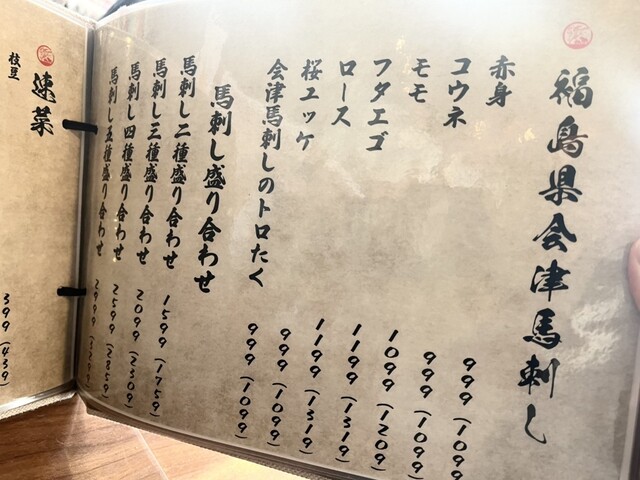 福島県会津馬刺し
赤身 999 (1099
コウネ 999 (1099)
モモ 1099 (1209)
フタエゴ 1199 (1319)
ロース 1199 (1319)
桜ユッケ 999 (1099)
会津馬刺しのトロたく 999 (1099)
馬刺し盛り合わせ
馬刺し二種盛り合わせ 1599 (1759)
馬刺し三種盛り合わせ 2099 (2309)
馬刺し四種盛り合わせ 2599 (2859)
馬刺し五種盛り合わせ 2999 (3299)
速菜
枝豆
399 (439)